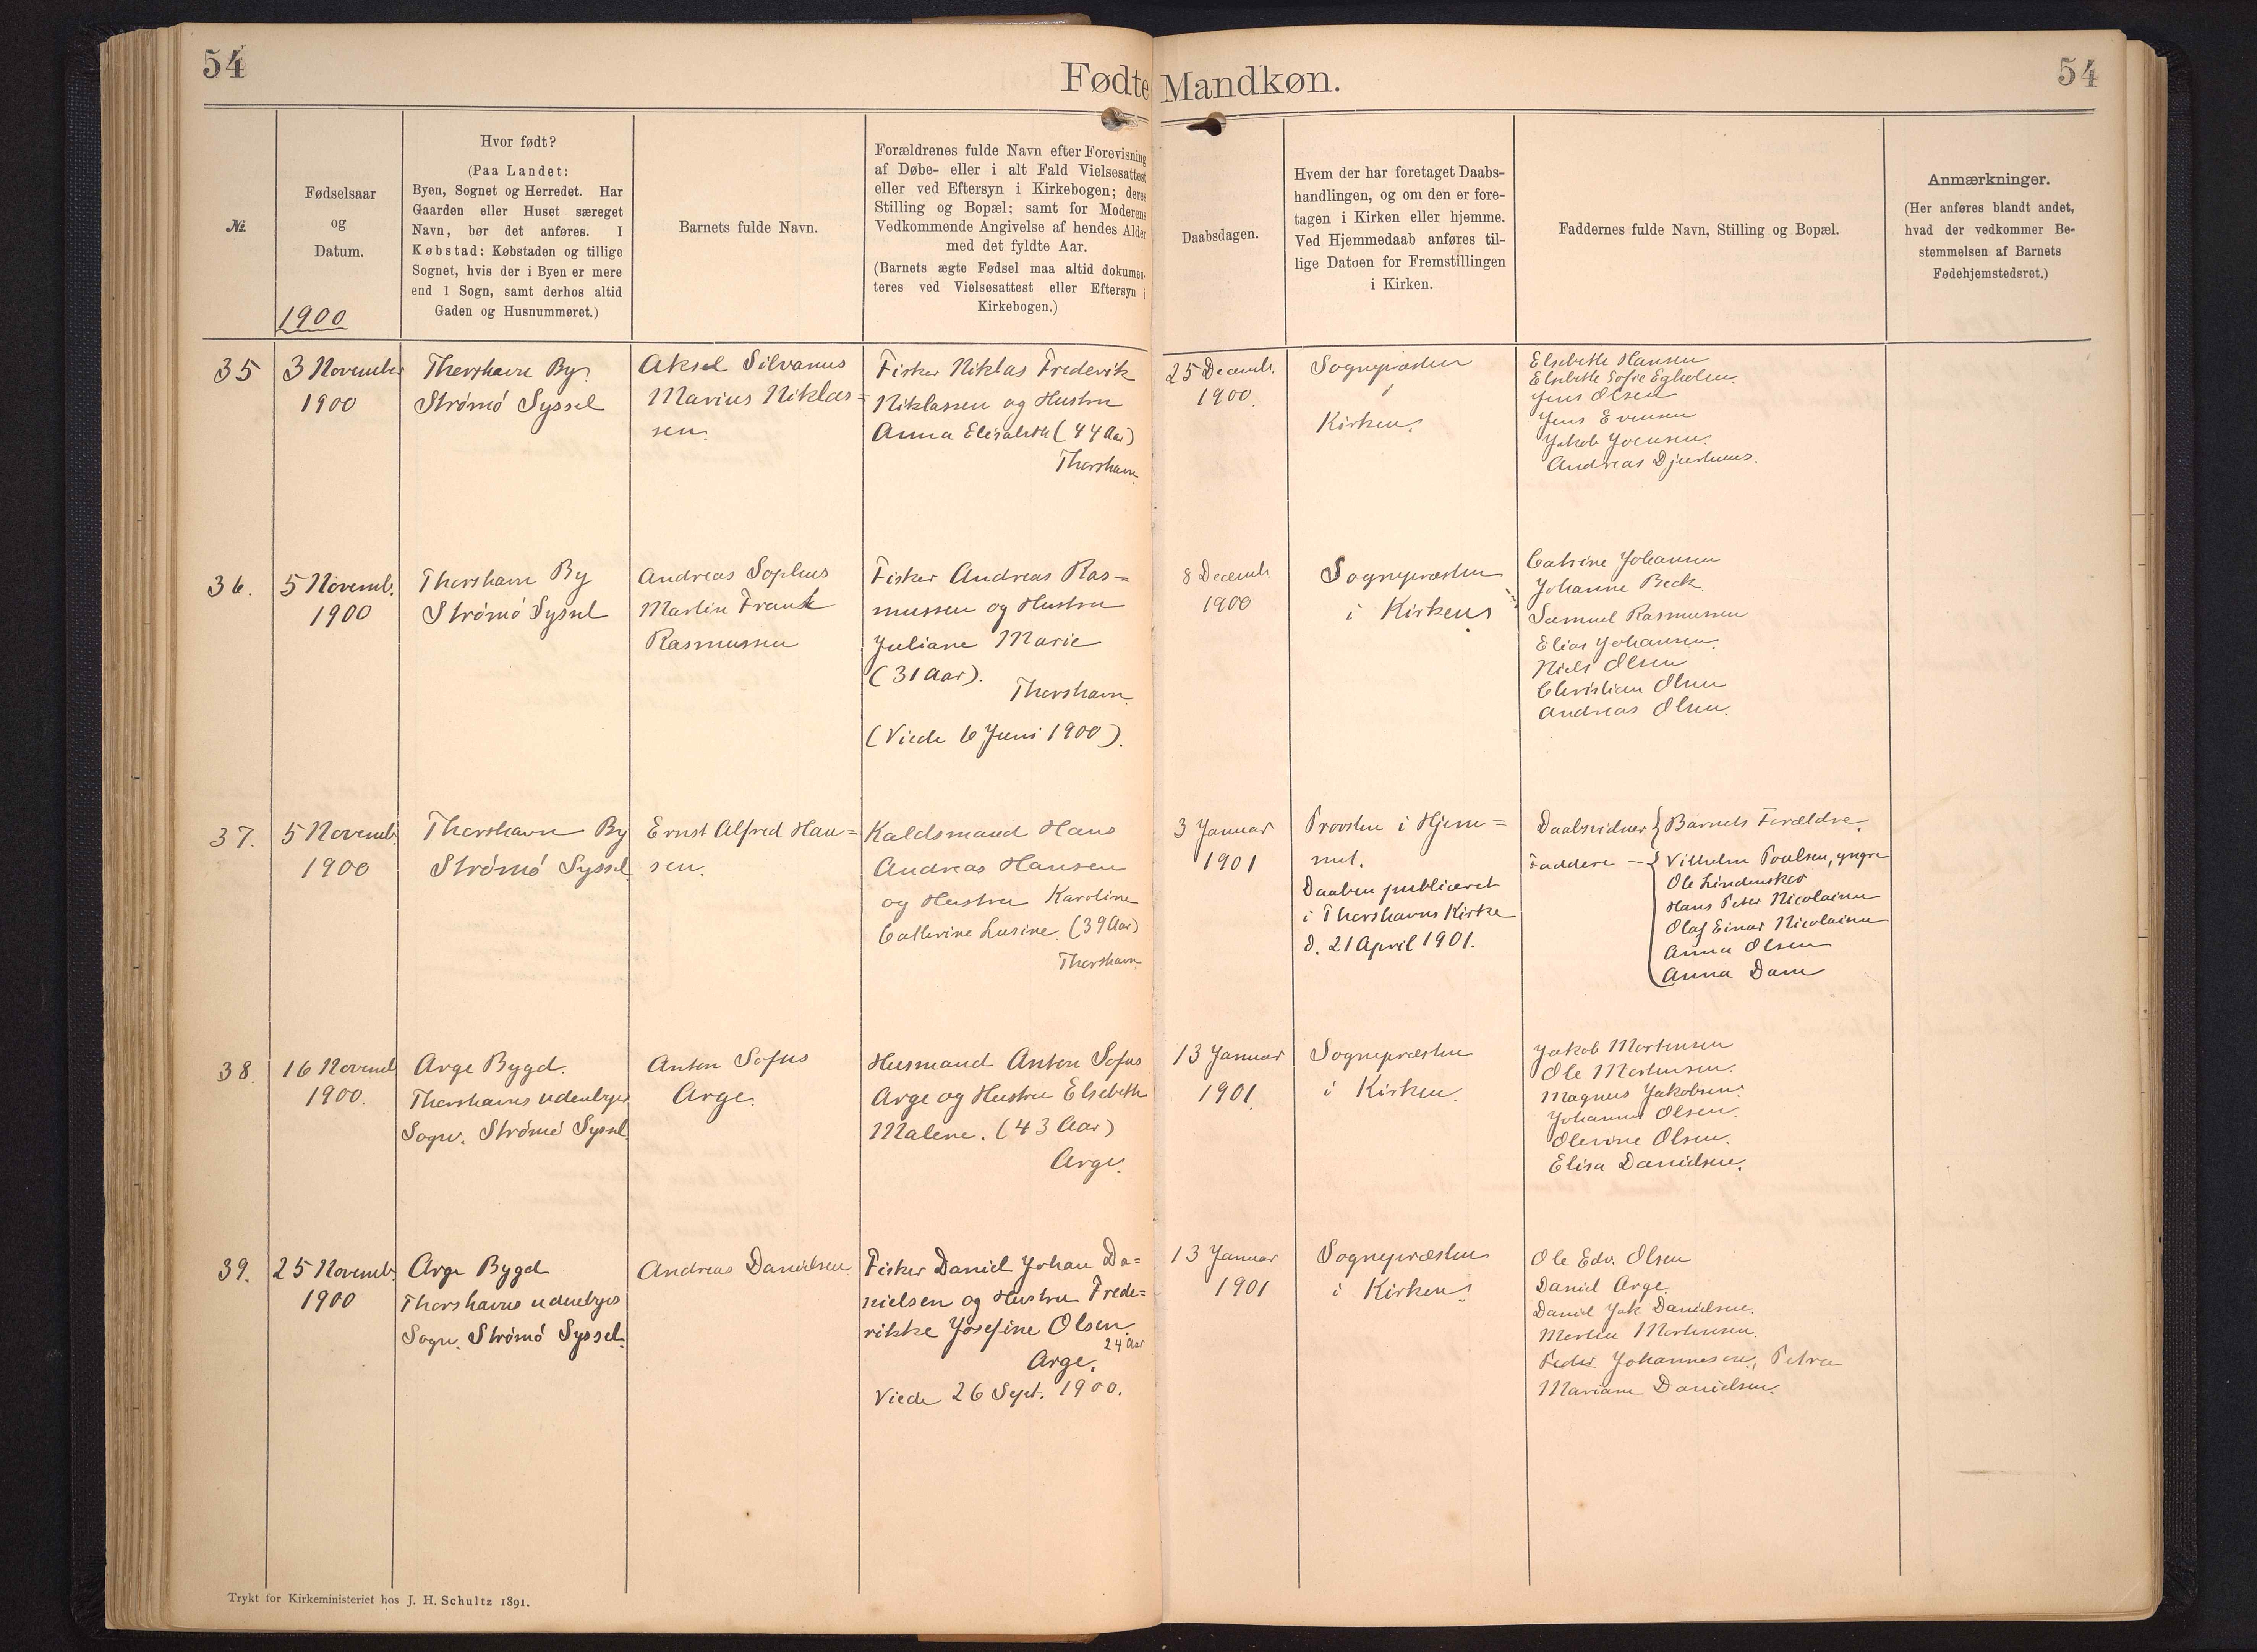 54
Fødte Mandkøn.
54
№.
Fødselsaar
og
Datum.
1900
Hvor født?
(Paa Landet:
Byen, Sognet og Herredet. Har
Gaarden eller Huset særeget
Navn, bør det anføres. I
Købstad: Købstaden og tillige
Sognet, hvis der i Byen er mere
end 1 Sogn, samt derhos altid
Gaden og Husnummeret.)
Barnets fulde Navn.
Forældrenes fulde Navn efter Forevisning
af Døbe- eller i alt Fald Vielsesattest
eller ved Eftersyn i Kirkebogen; deres
Stilling og Bopæl; samt for Moderens
Vedkommende Angivelse af hendes Alder
med det fyldte Aar.
(Barnets ægte Fødsel maa altid dokumen-
teres ved Vielsesattest eller Eftersyn i
Kirkebogen.)
Daabsdagen.
Hvem der har foretaget Daabs-
handlingen, og om den er fore-
tagen i Kirken eller hjemme.
Ved Hjemmedaab anføres til-
lige Datoen for Fremstillingen
i Kirken.
Faddernes fulde Navn, Stilling og Bopæl.
Anmærkninger.
(Her anføres blandt andet,
hvad der vedkommer Be-
stemmelsen af Barnets
Fødehjemstedsret.)
35
3 November
1900
Thorshavn By.
Strömö Syssel
Aksel Silvanus
Marius Niklas=
sen.
Fisker Niklas Frederik
Niklassen og Hustru
Anna Elisabeth (44 Aar)
Thorshavn.
25 Decemb.
1900.
Sognepræsten
i
Kirken.
Elsebeth Hansen
Elsebeth Sofie Egholm.
Jens Olsen
Jens Evensen
Jakob Joensen.
Andreas Djurhuus.
36.
5 Novemb.
1900
Thorshavn By
Strömö Syssel
Andreas Sophus
Martin Frank
Rasmussen
Fisker Andreas Ras=
mussen og Hustru
Juliane Marie
(31 Aar).
Thorshavn.
(Viede 6 Juni 1900).
8 Decemb.
1900
Sognepræsten
i Kirken
Catrine Johansen
Johanne Beck.
Samuel Rasmussen
Elias Johansen.
Niels Olsen
Christian Olsen
Andreas Olsen.
37.
5 Novemb.
1900
Thorshavn By
Strömö Syssel.
Ernst Alfred Han=
sen.
Kaldsmand Hans
Andreas Hansen
og Hustru Karoline
Cathrine Lusine. (39 Aar)
Thorshavn
3 Januar
1901
Provsten i Hjem=
met.
Daaben publiceret
i Thorshavns Kirke
d. 21 April 1901.
Daabsvidner { Barnets Forældre.
Faddere -- { Vilhelm Poulsen, yngre
Ole Lindenskov
Hans Peter Nicolaisen
Olaf Einar Nicolaisen
Anna Olsen
Anna Dam
38.
16 Novemb
1900.
Arge Bygd.
Thorshavns udenbyes
Sogn. Strömö Syssel.
Anton Sofus
Arge.
Husmand Anton Sofus
Arge og Hustru Elsebeth
Malene. (43 Aar)
Arge.
13 Januar
1901.
Sognepræsten
i Kirken.
Jakob Mortensen
Ole Mortensen.
Magnus Jakobsen.
Johannes Olsen.
Olevine Olsen.
Elisa Danielsen.
39.
25 Novemb.
1900
Arge Bygd
Thorshavns udenbyes
Sogn. Strömö Syssel.
Andreas Danielsen
Fisker Daniel Johan Da=
nielsen og Hustru Frede=
rikke Josefine Olsen.
24 Aar
Arge.
Viede 26 Sept. 1900.
13 Januar
1901
Sognepræsten
i Kirken.
Ole Edv. Olsen
Daniel Arge.
Daniel Jak Danielsen.
Morten Mortensen.
Peder Johannesen, Petra
Mariane Danielsen.
Trykt for Kirkeministeriet hos J. H. Schultz 1891.